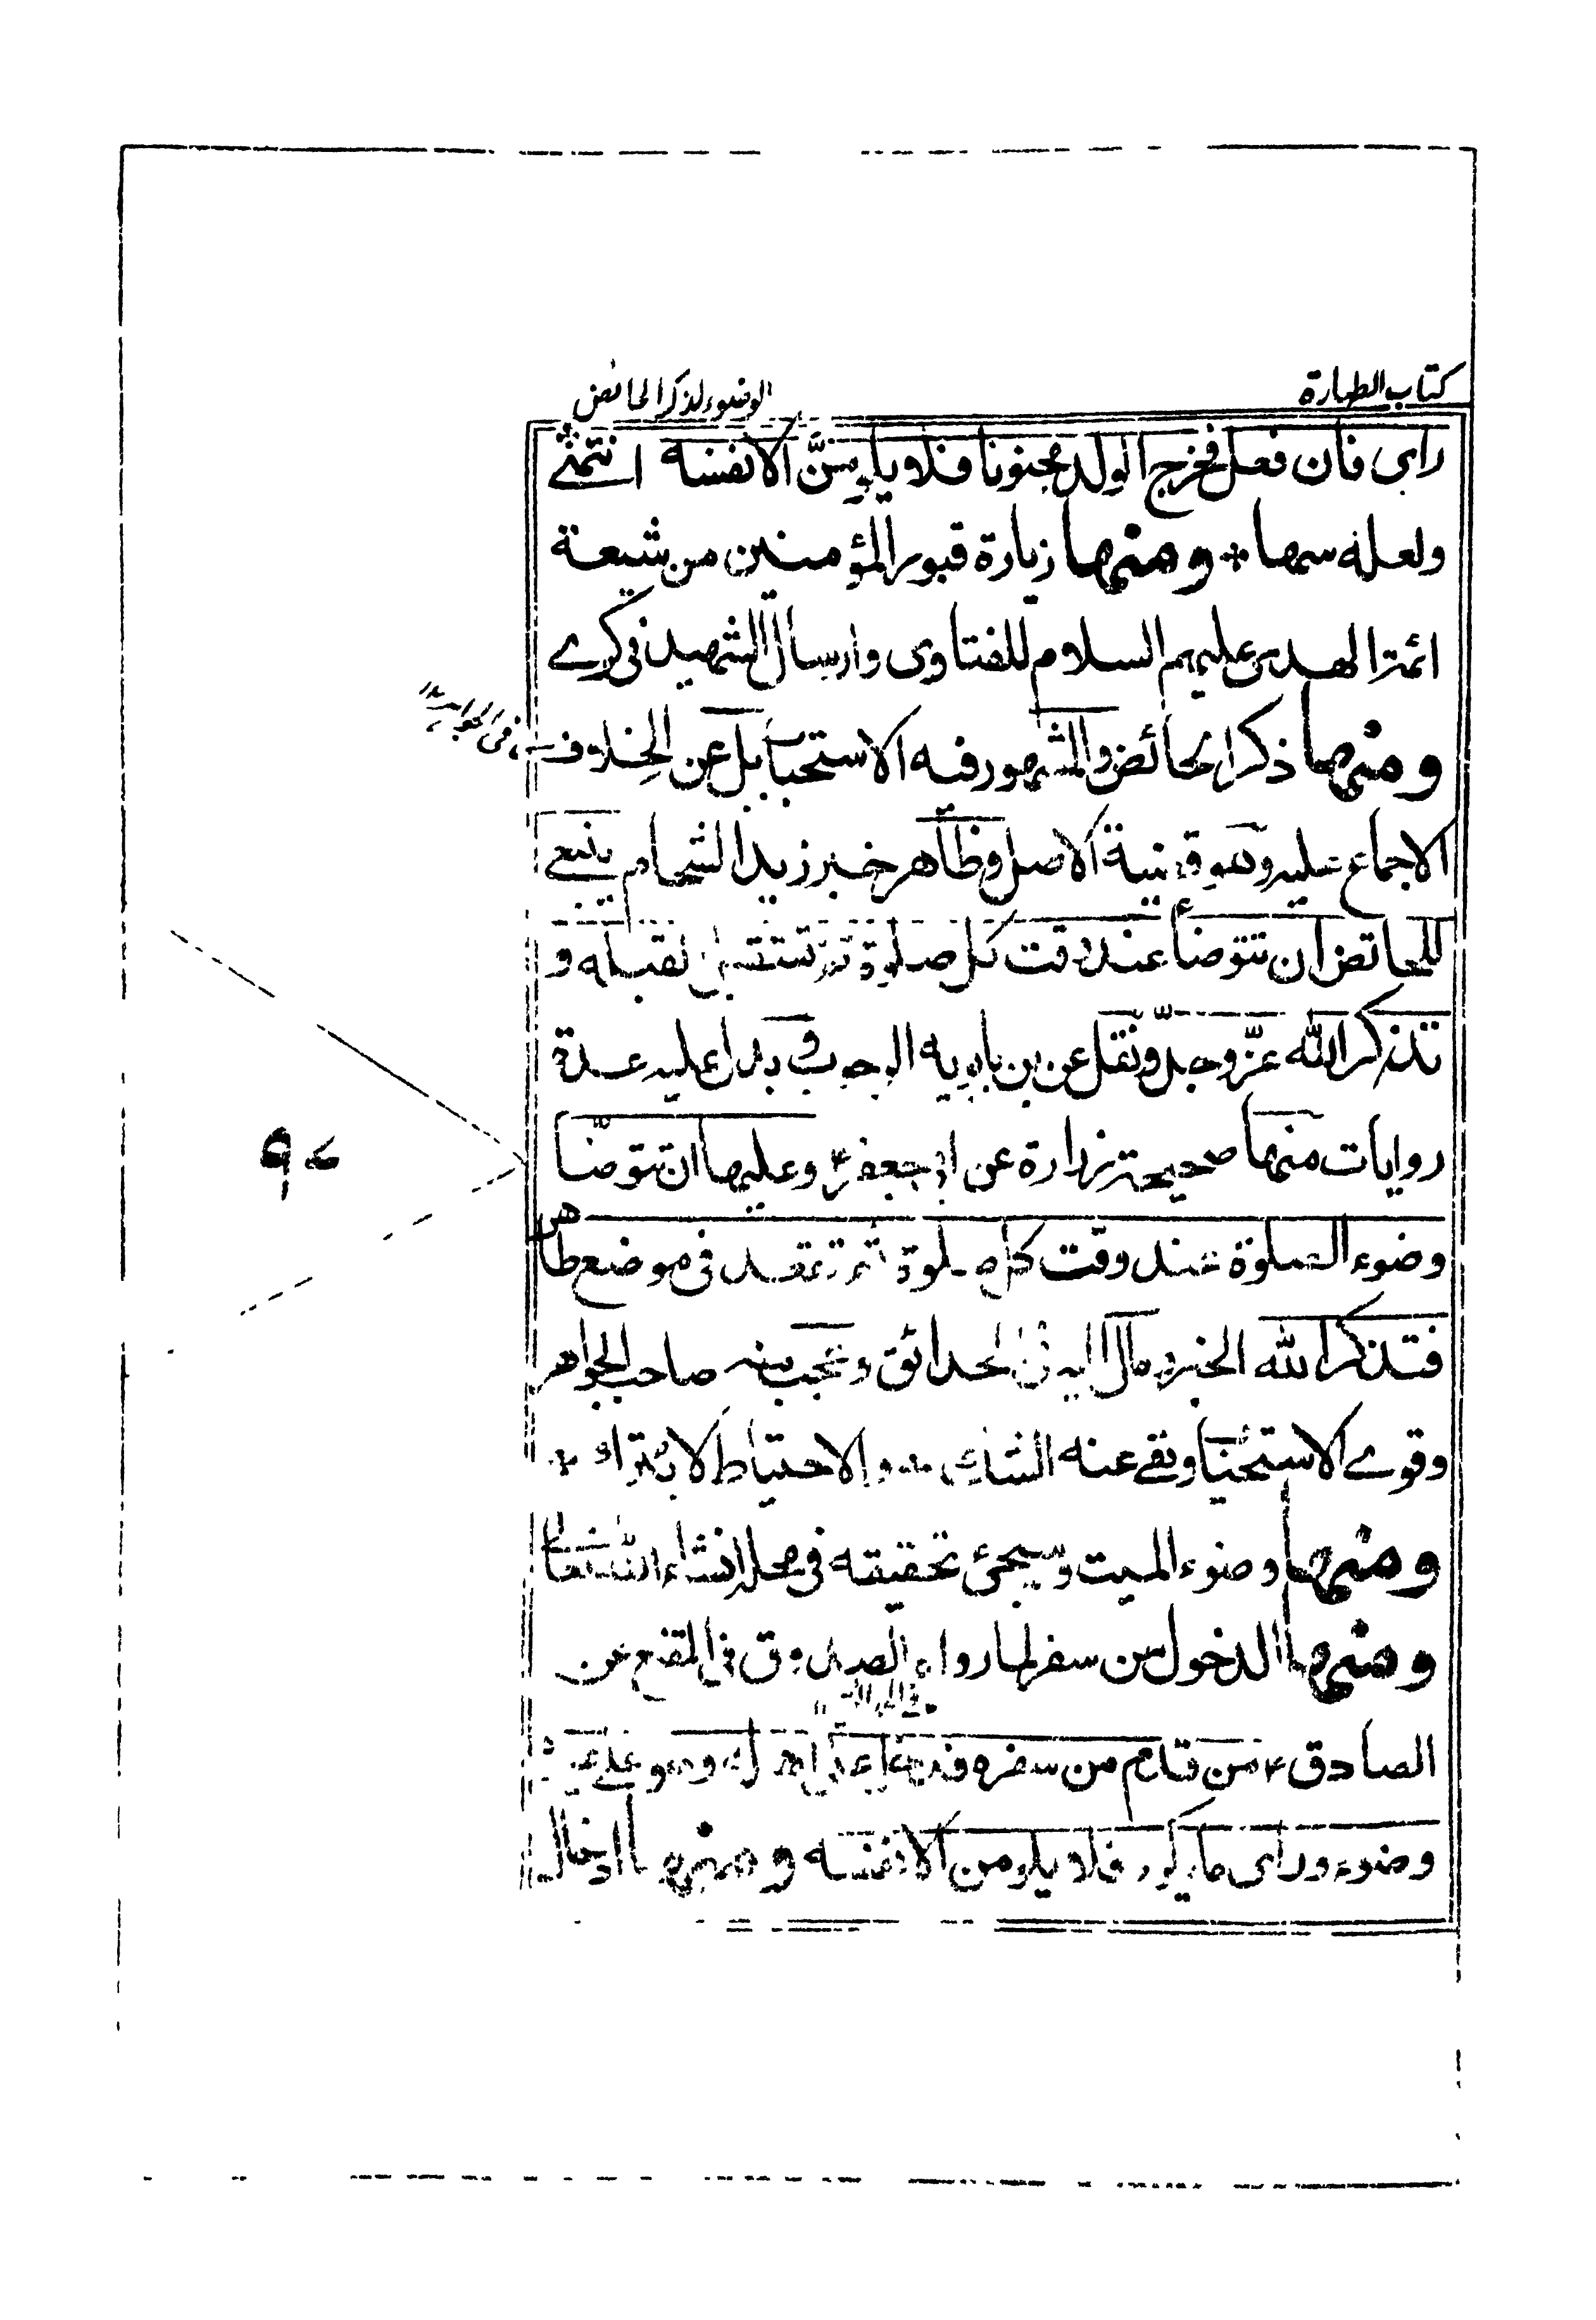 كتاب الطهارة
الوضوء لذكر الحائض
راى فان فعل فخرج الولد مجنونا فلا يلومنّ الا نفسه انتهى
ولعله سها * ومنها زيارة قبور المؤمنين من شيعة
ائمة الهدى عليهم السلام للفتاوى وارسال الشهيد فى كرے
ومنها ذكر الحائض والمشهور فيه الاستحباب بل عن الخلاف
الاجماع عليه وهو قضية الاصل وظاهر خبر زيد الشحام ينبغى
للحائض ان تتوضأ عند وقت كل صلوة ثم تستقبل القبلة و
تذكر الله عزّ وجلّ ونقل عن بن بابويه الوجوب و يدل عليه عدة
روايات منها صحيحة زرارة عن ابى جعفر ع وعليها ان تتوضّأ
وضوء الصلوة عند وقت كل صلوة ثم تقعد فى موضع طاهر
فتذكر الله الخبر ومال اليه فى الحدائق وتعجب منه صاحب الجواهر
وقوے الاستحباب ونفى عنه الشك * والاحتياط لا يترك *
ومنها وضوء الميت وسيجئ تحقيقه فى محله انشاء الله تعالى
ومنها الدخول من سفر لما رواه الصدوق فى المقنع عن
الصادق ع من قدم من سفره فدخل على اهله وهو على غير
وضوء وراى ما يكره فلا يلومن الا نفسه ومنها ادخال
٩٧